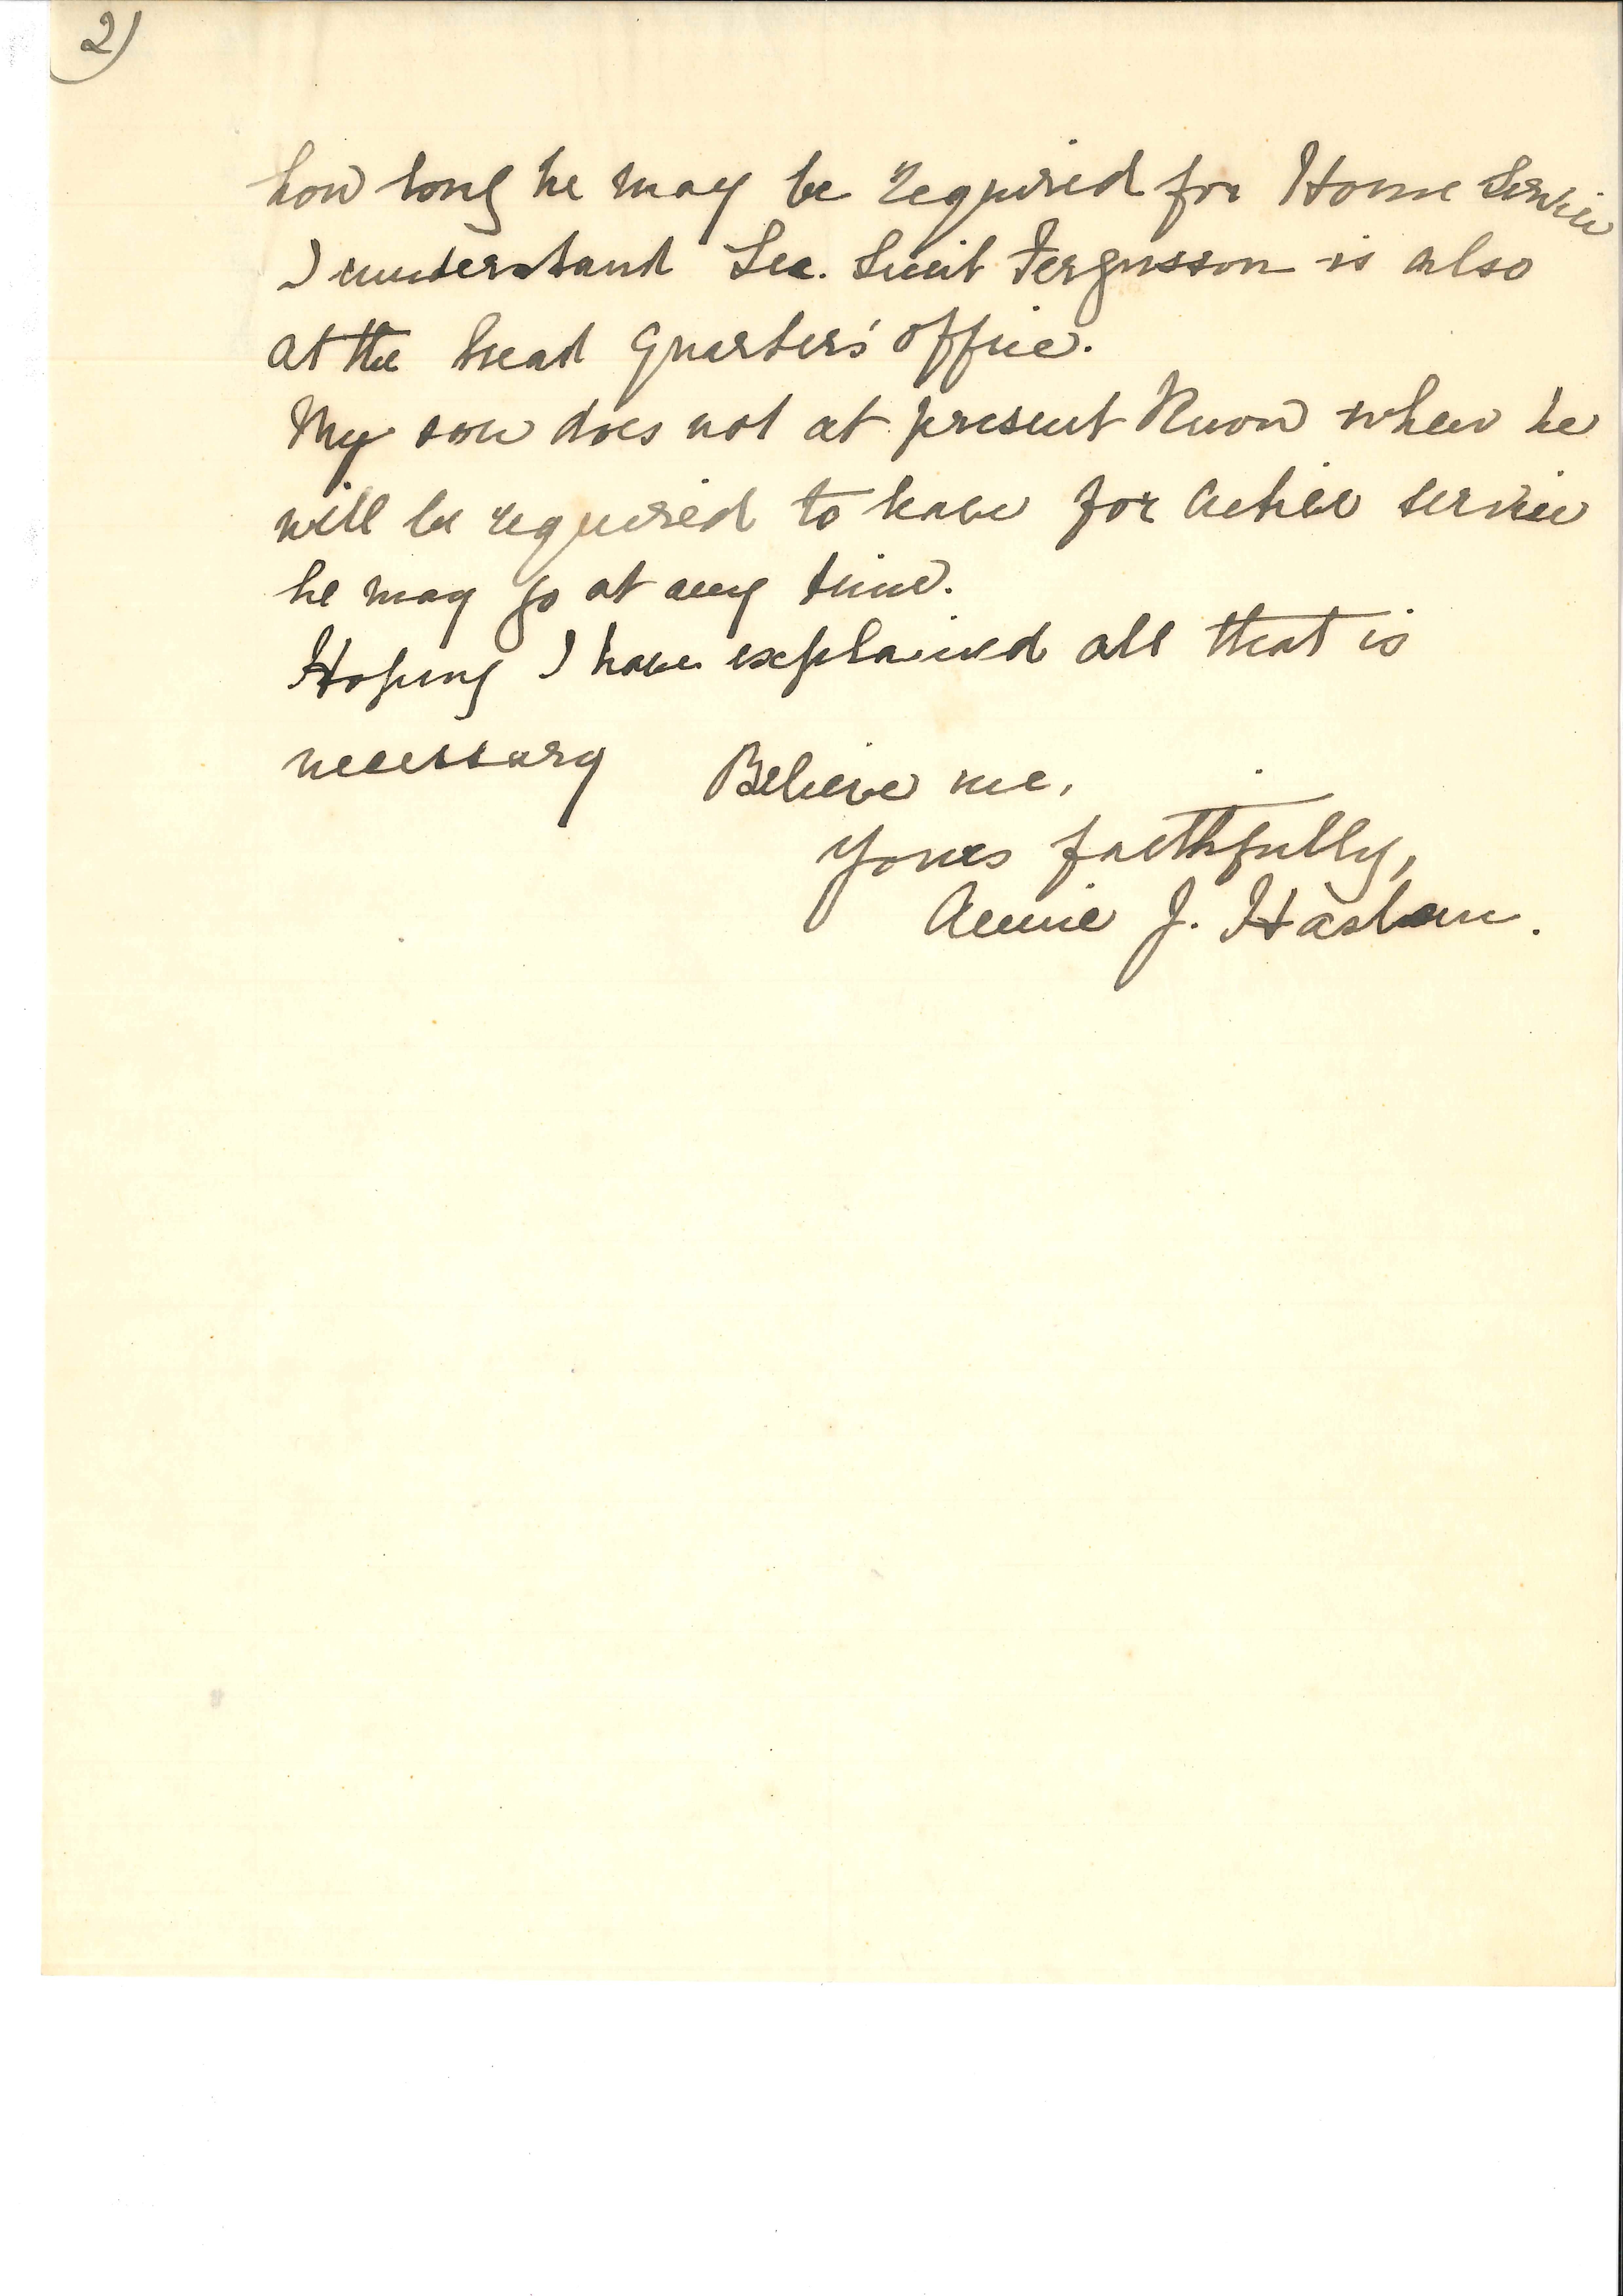 2)
how long he may be required for Home Service
I understand Sec. Lieut Fergusson is also
at the head quarters' office.
My son does not at present know when he
will be required to leave for active service
he may go at any time.
Hoping I have explained all that is
necessary Believe me,
Yours faithfully,
Annie J. Haslam.